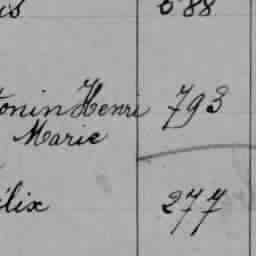 688
tonin Henri 793
Marie
élix 277